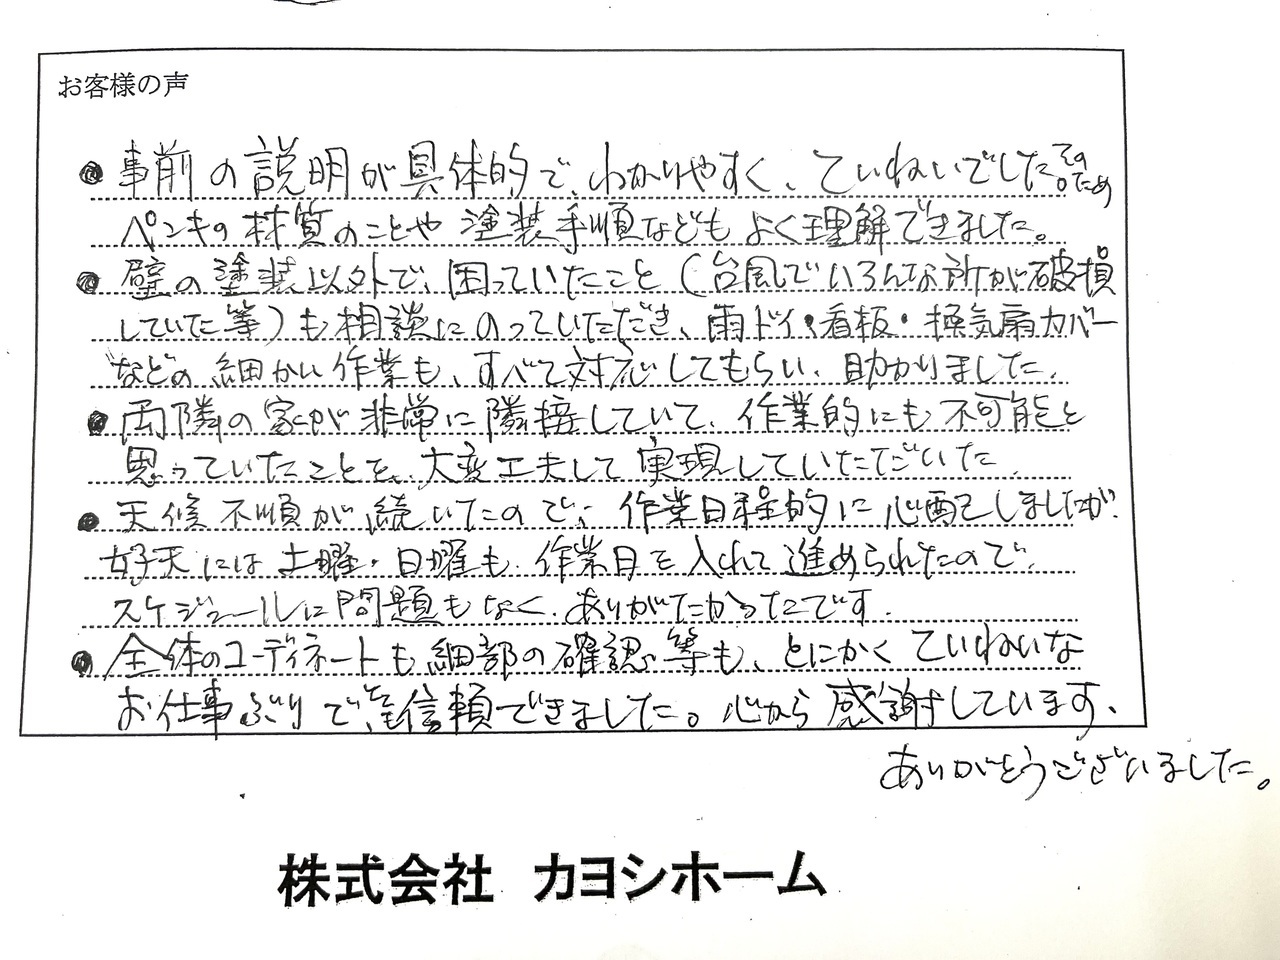 お客様の声
●事前の説明が具体的で、わかりやすく、ていねいでした。そのため
ペンキの材質のことや塗装手順などもよく理解できました。
●壁の塗装以外で、困っていたこと(台風でいろんな所が破損
していた等)も相談にのっていただき、雨ドイ・看板・換気扇カバー
などの細かい作業も、すべて対応してもらい、助かりました。
●両隣の家が非常に隣接していて、作業的にも不可能と
思っていたことを、大変工夫して実現していただいた。
●天候不順が続いたので、作業日程的に心配しましたが、
好天には土曜・日曜も、作業日を入れて進められたので、
スケジュールに問題もなく、ありがたかったです。
●全体のコーディネートも細部の確認等も、とにかくていねいな
お仕事ぶりで、信頼できました。心から感謝しています。
ありがとうございました。
株式会社 カヨシホーム